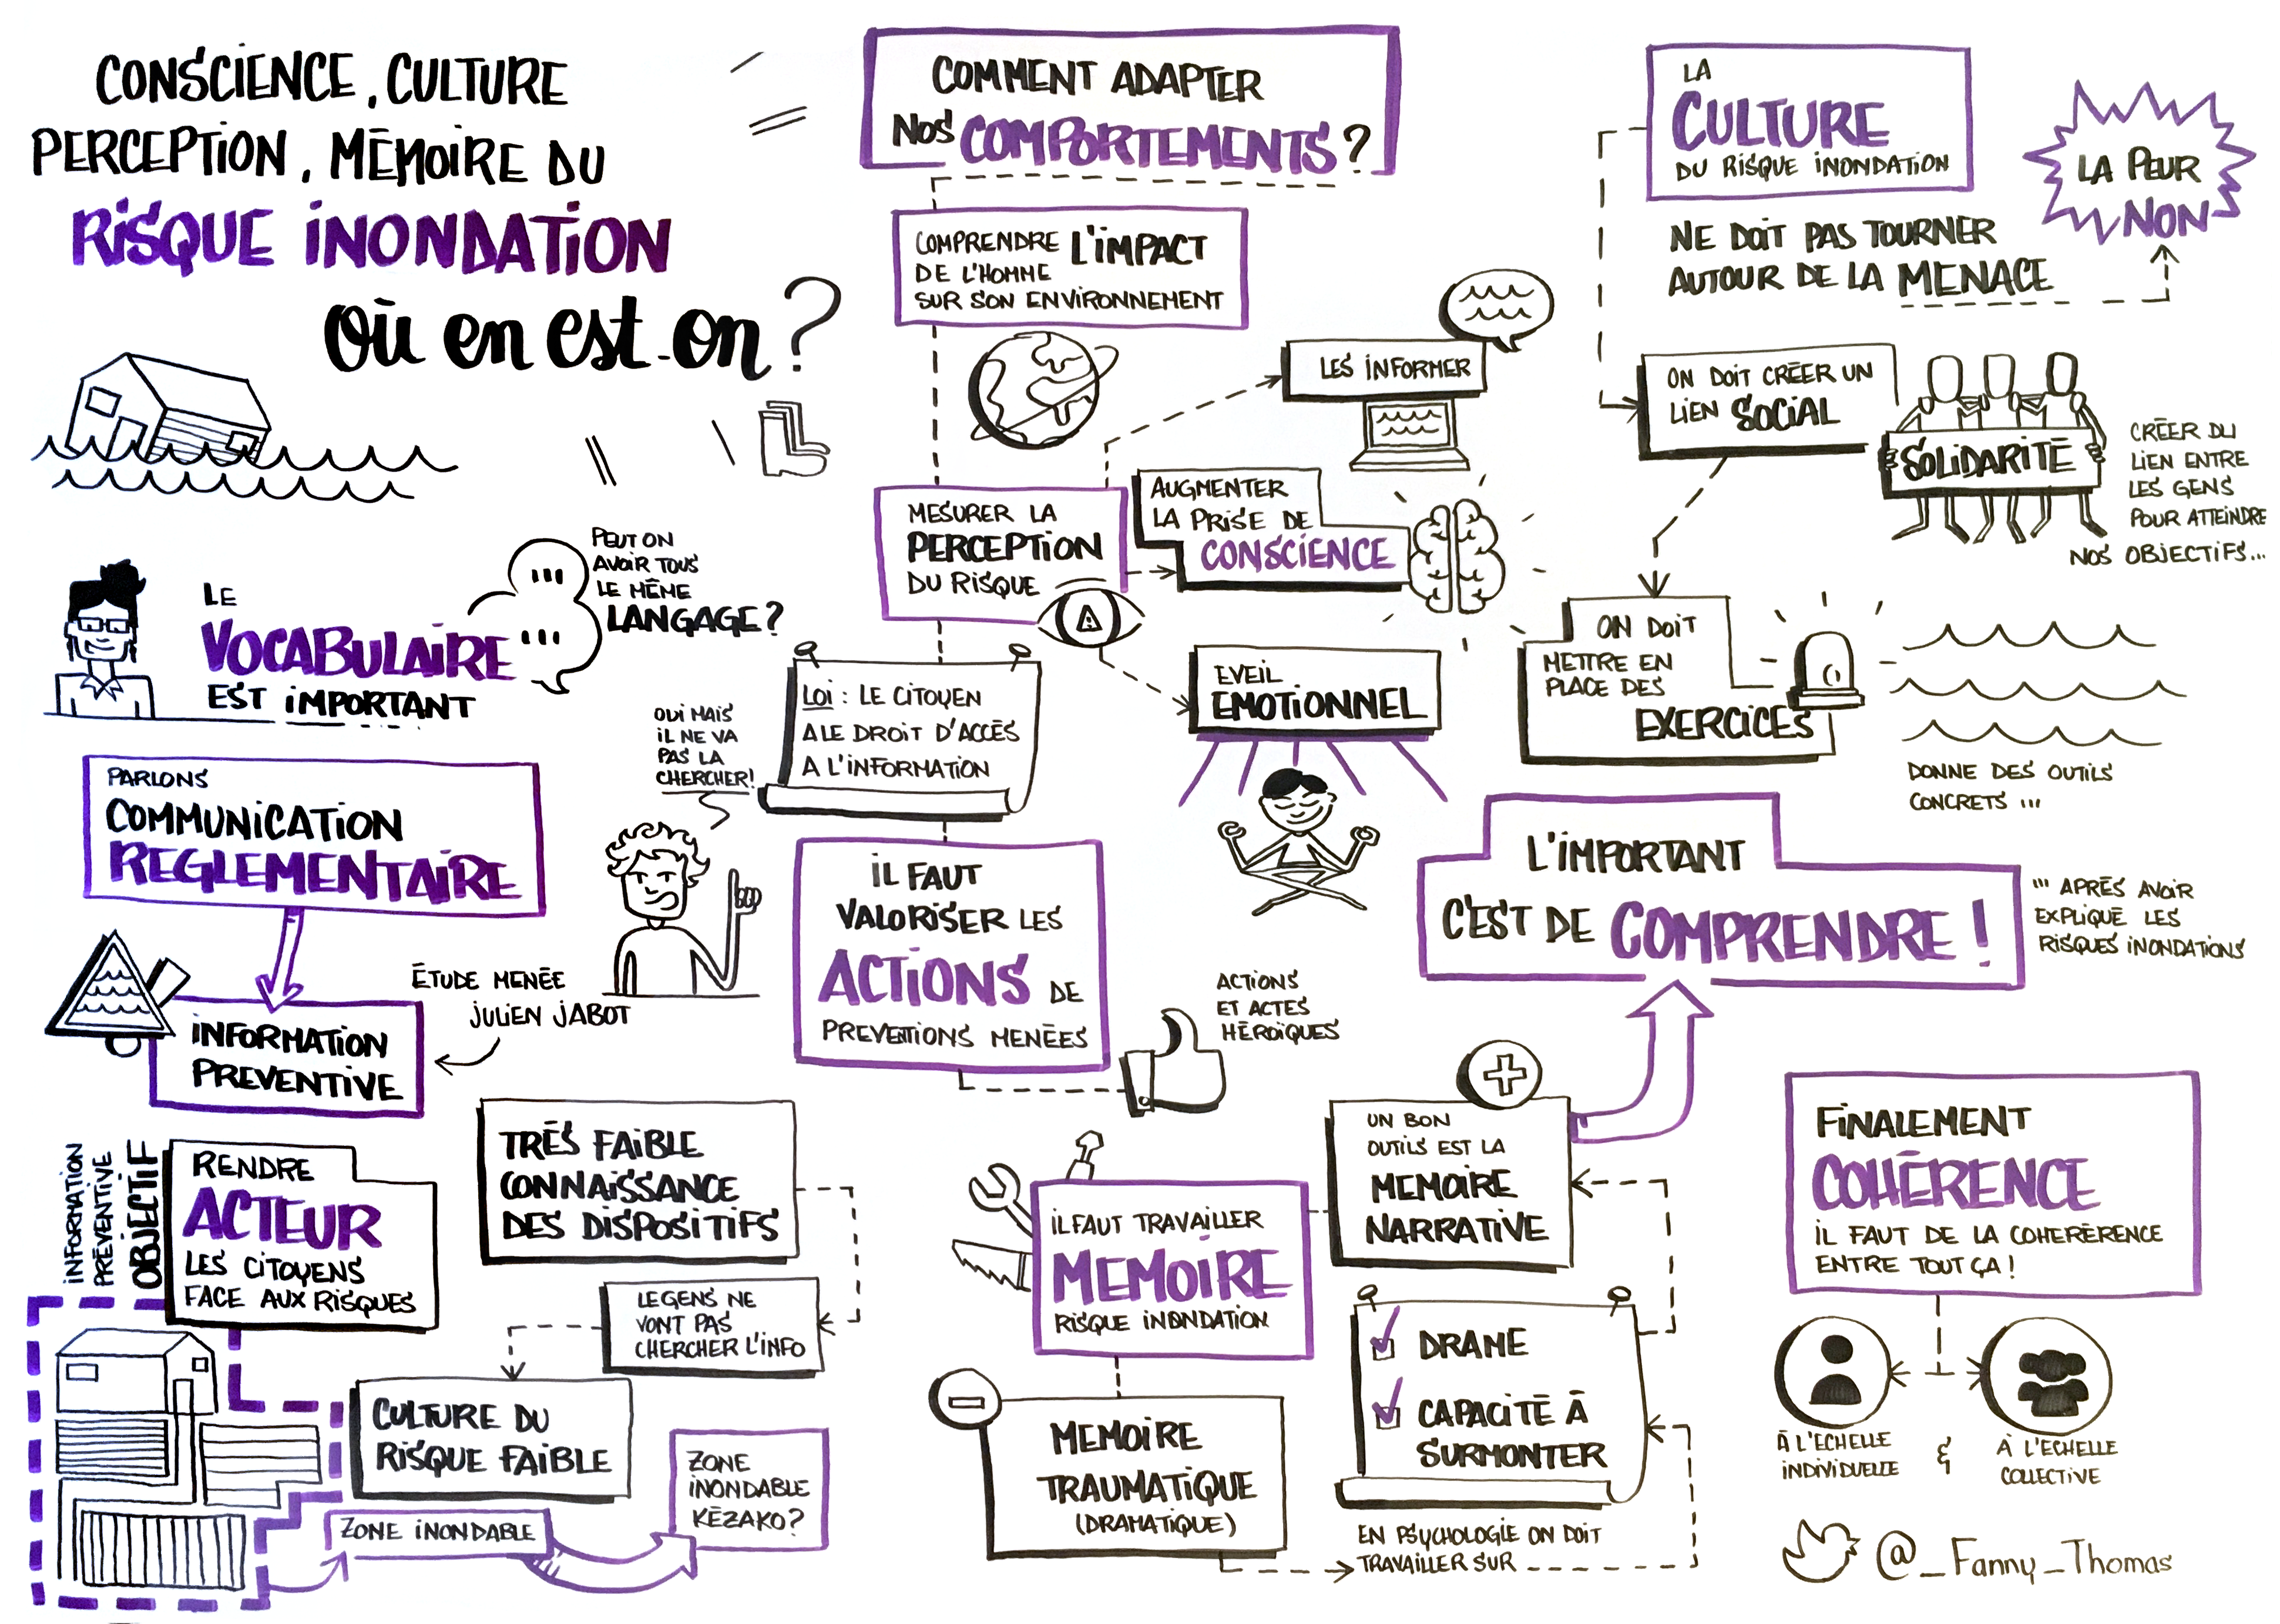 CONSCIENCE, CULTURE
PERCEPTION, MÉMOIRE DU
RISQUE INONDATION
Où en est-on ?
LE
VOCABULAIRE
EST IMPORTANT
PEUT ON
AVOIR TOUS
LE MÊME
LANGAGE ?
PARLONS
COMMUNICATION
REGLEMENTAIRE
INFORMATION
PREVENTIVE
ÉTUDE MENÉE
JULIEN JABOT
INFORMATION
PRÉVENTIVE
OBJECTIF
RENDRE
ACTEUR
LES CITOYENS
FACE AUX RISQUES
TRÈS FAIBLE
CONNAISSANCE
DES DISPOSITIFS
LE GENS NE
VONT PAS
CHERCHER L'INFO
CULTURE DU
RISQUE FAIBLE
ZONE INONDABLE
ZONE
INONDABLE
KÉZAKO ?
COMMENT ADAPTER
NOS COMPORTEMENTS ?
COMPRENDRE L'IMPACT
DE L'HOMME
SUR SON ENVIRONNEMENT
MESURER LA
PERCEPTION
DU RISQUE
LES INFORMER
AUGMENTER
LA PRISE DE
CONSCIENCE
EVEIL
EMOTIONNEL
LOI : LE CITOYEN
A LE DROIT D'ACCÈS
A L'INFORMATION
OUI MAIS
IL NE VA
PAS LA
CHERCHER !
IL FAUT
VALORISER LES
ACTIONS DE
PREVENTIONS MENÉES
ACTIONS
ET ACTES
HÉROÏQUES
IL FAUT TRAVAILLER
MEMOIRE
RISQUE INONDATION
MEMOIRE
TRAUMATIQUE
(DRAMATIQUE)
EN PSYCHOLOGIE ON DOIT
TRAVAILLER SUR
DRAME
CAPACITÉ À
SURMONTER
UN BON
OUTILS EST LA
MEMOIRE
NARRATIVE
LA
CULTURE
DU RISQUE INONDATION
NE DOIT PAS TOURNER
AUTOUR DE LA MENACE
LA PEUR
NON
ON DOIT CRÉER UN
LIEN SOCIAL
SOLIDARITÉ
CRÉER DU
LIEN ENTRE
LES GENS
POUR ATTEINDRE
NOS OBJECTIFS...
ON DOIT
METTRE EN
PLACE DES
EXERCICES
DONNE DES OUTILS
CONCRETS ...
L'IMPORTANT
C'EST DE COMPRENDRE !
... APRÈS AVOIR
EXPLIQUÉ LES
RISQUES INONDATIONS
FINALEMENT
COHÉRENCE
IL FAUT DE LA COHERÉRENCE
ENTRE TOUT ÇA !
À L'ECHELLE
INDIVIDUELLE
&
À L'ECHELLE
COLLECTIVE
@_Fanny_Thomas